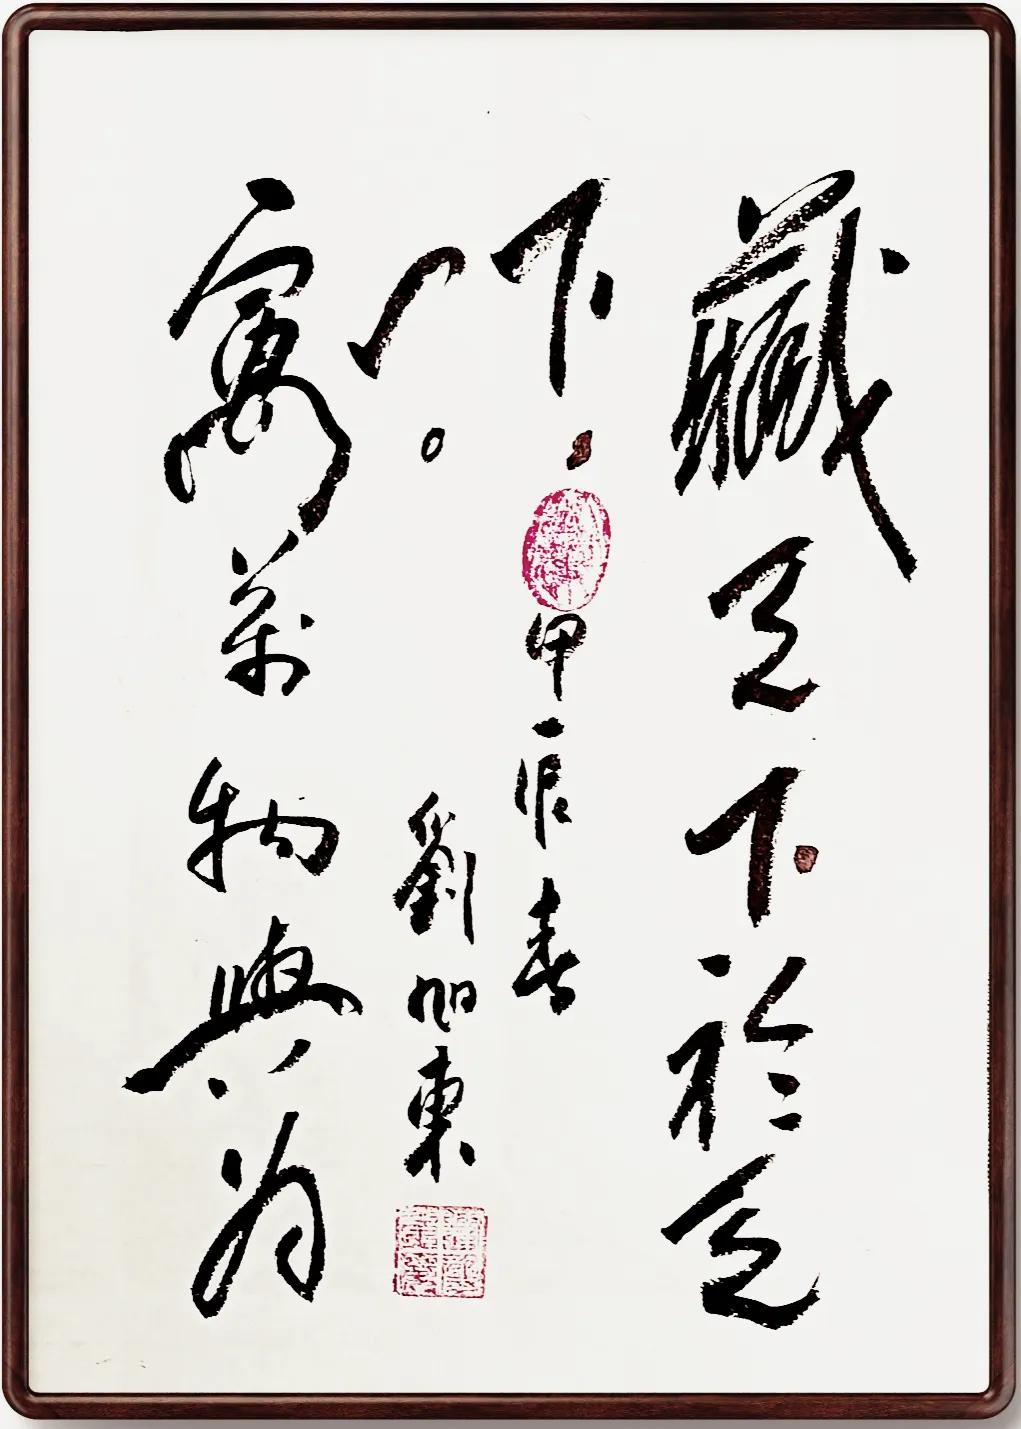 藏天下於天
下
寓萬物與為
甲辰春
劉旭東